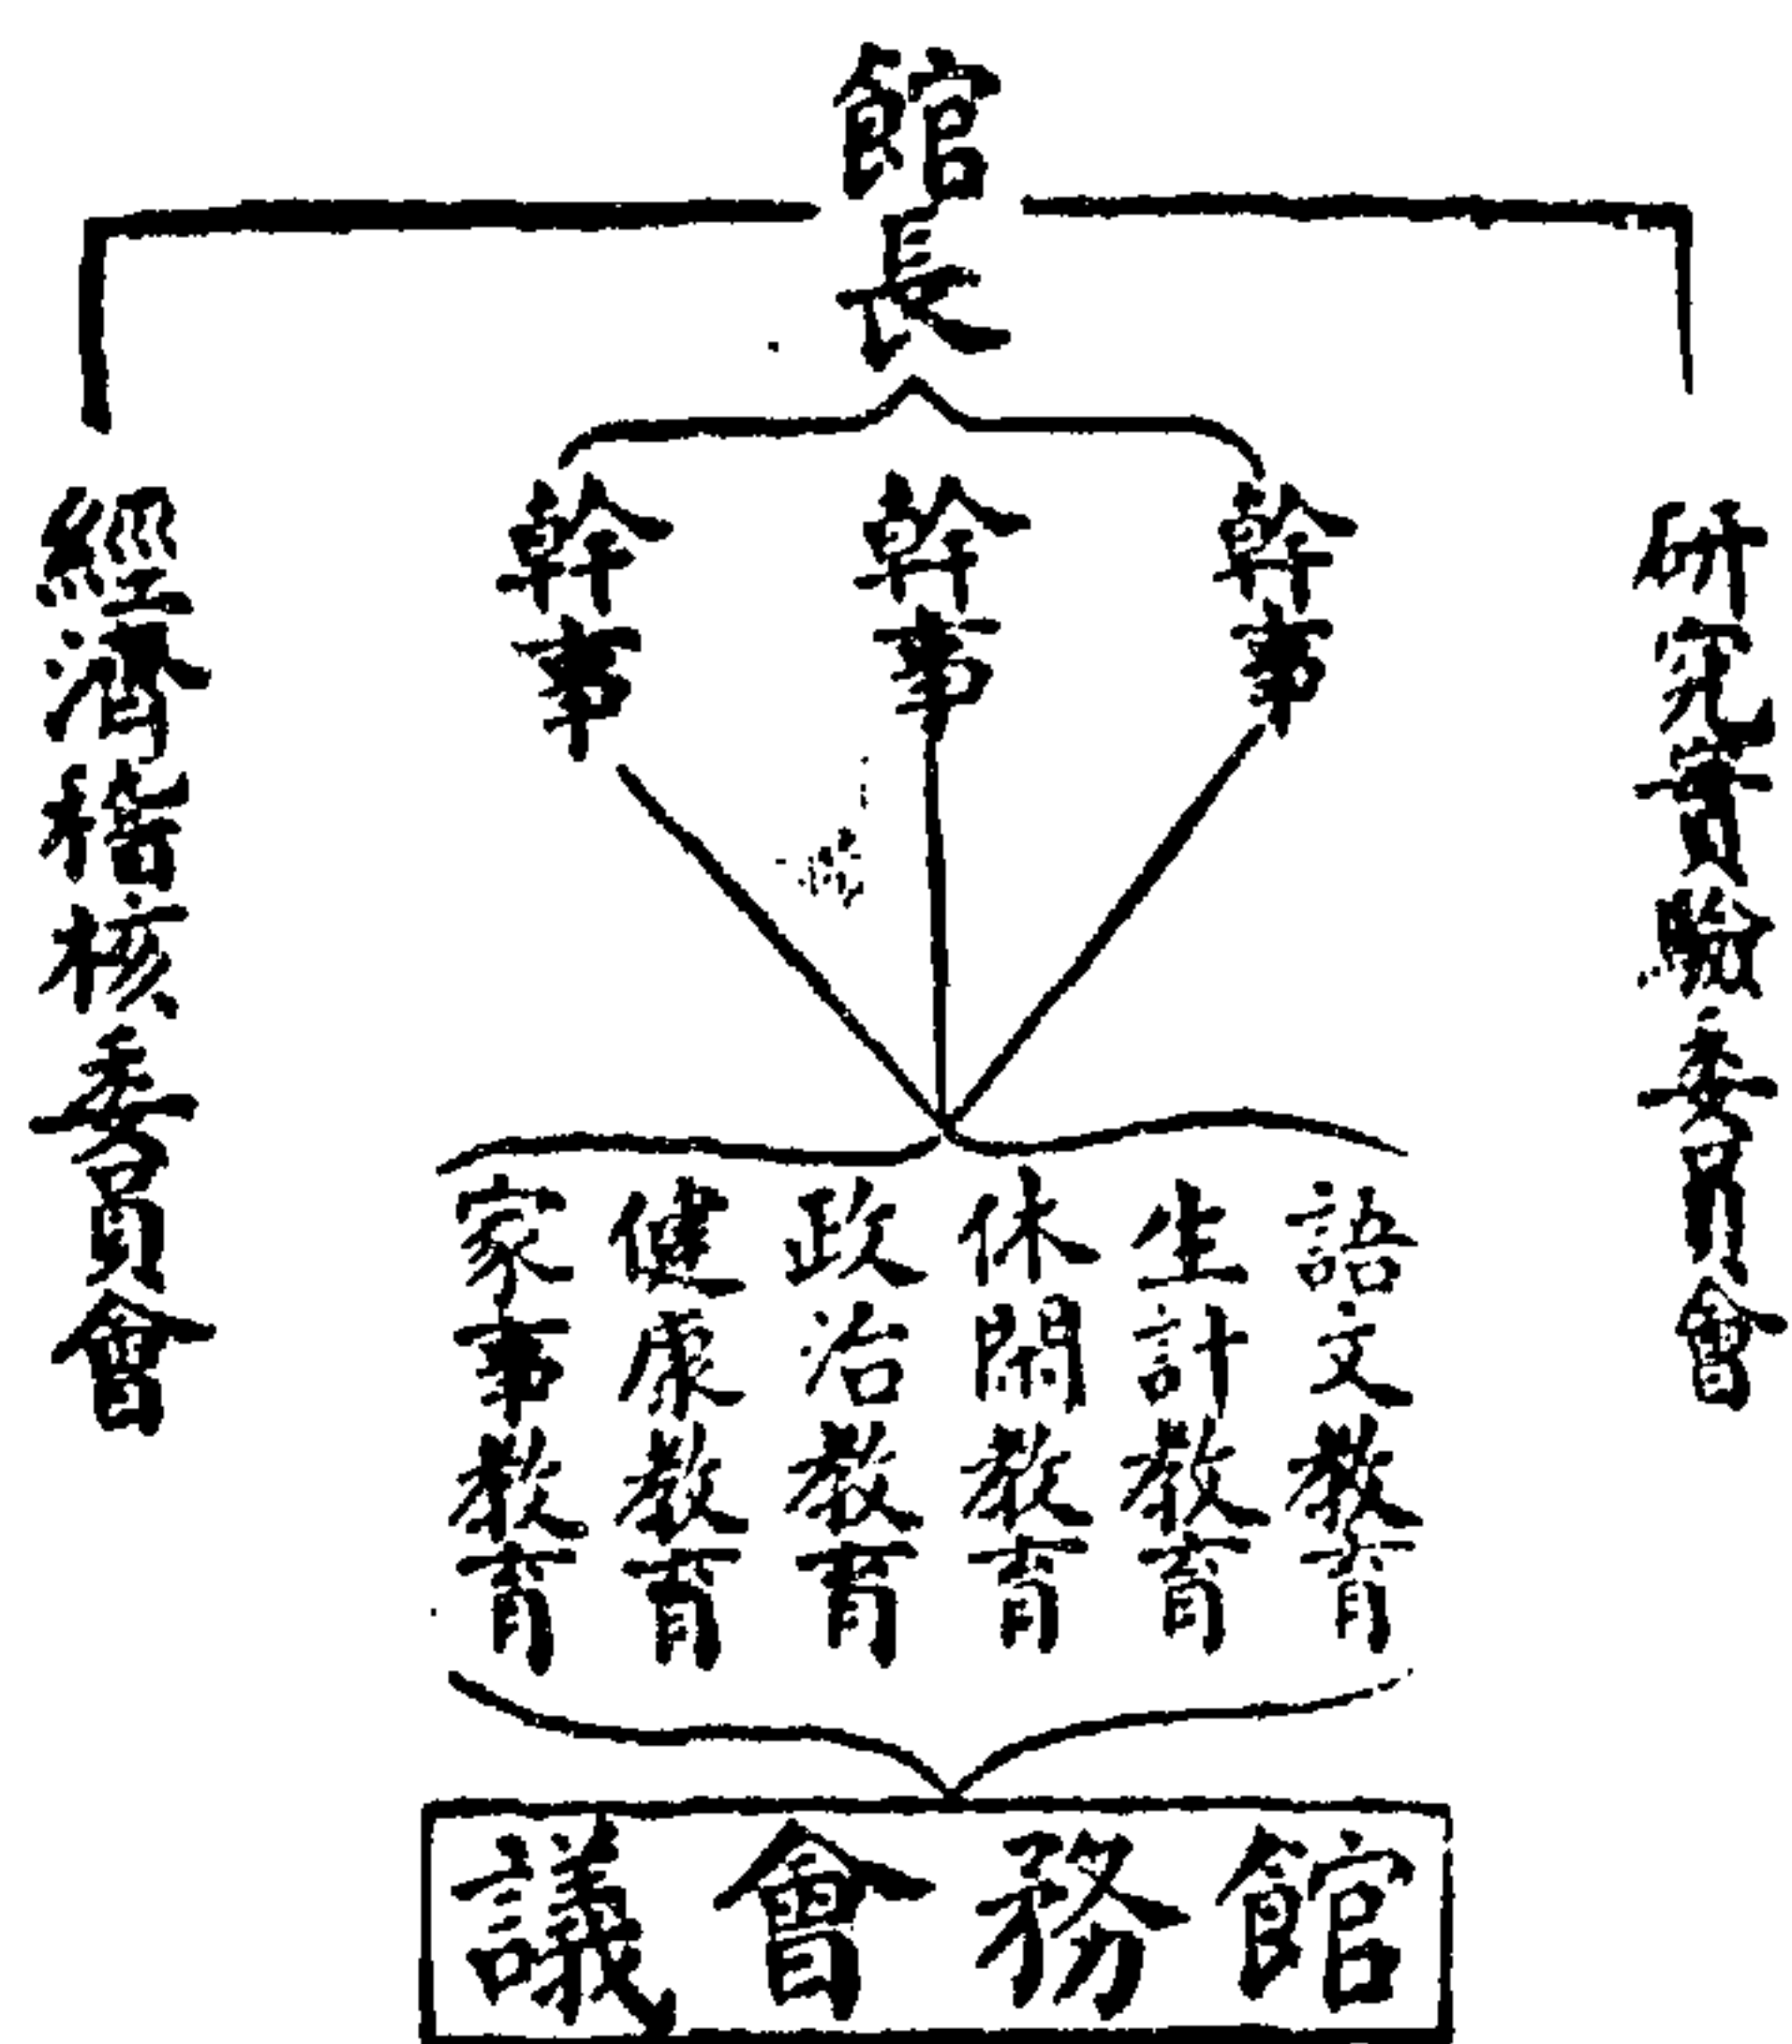 館長
研究實驗委員會
幹事
幹事
幹事
經濟稽核委員會
語文教育
生計教育
休閒教育
政治教育
健康教育
家事教育
館務會議